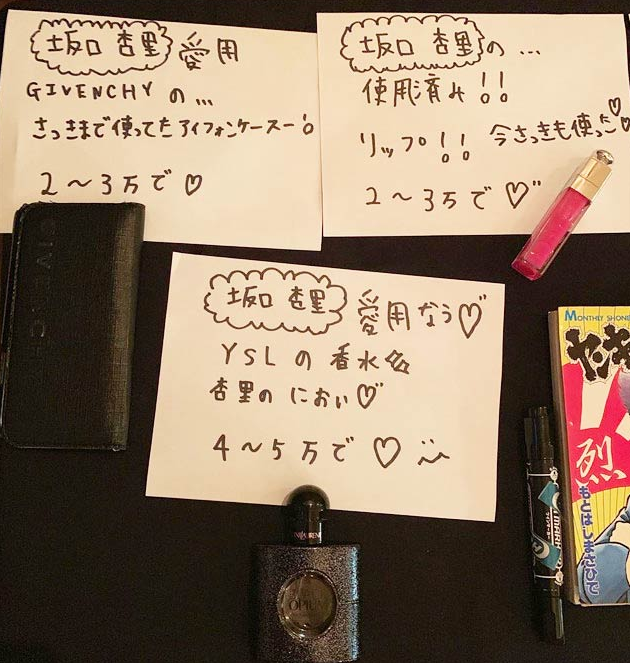 坂口 杏里 愛用
GIVENCHY の...
さっきまで使ってたアイフォンケースー!○
2〜3万で♡
坂口 杏里の...
使用済み!!
リップ!! 今さっきも使った♡♡
2〜3万で♡"
坂口 杏里 愛用なう♡
YSLの香水
杏里のにおい♡
4〜5万で♡
GIVENCHY
OPIUM
MONTHLY SHONE
ヤンキ
烈